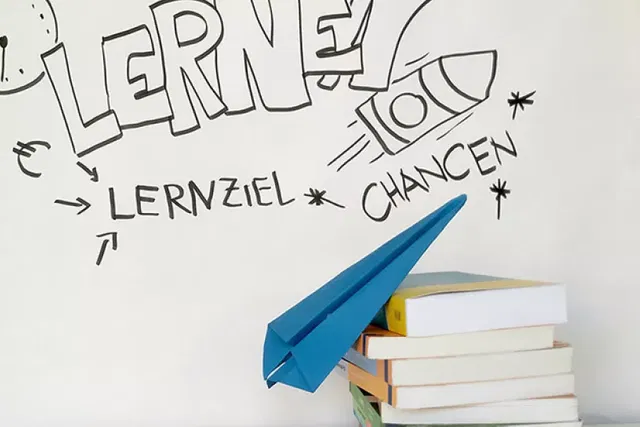 LERNEN
€ LERNZIEL
CHANCEN